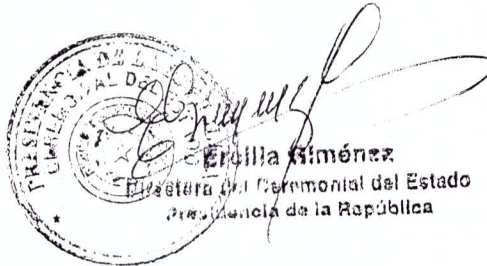 PRESIDENCIA DE LA
CEREMONIAL DEL
Ercilia Giménez
Directora del Ceremonial del Estado
Presidencia de la República